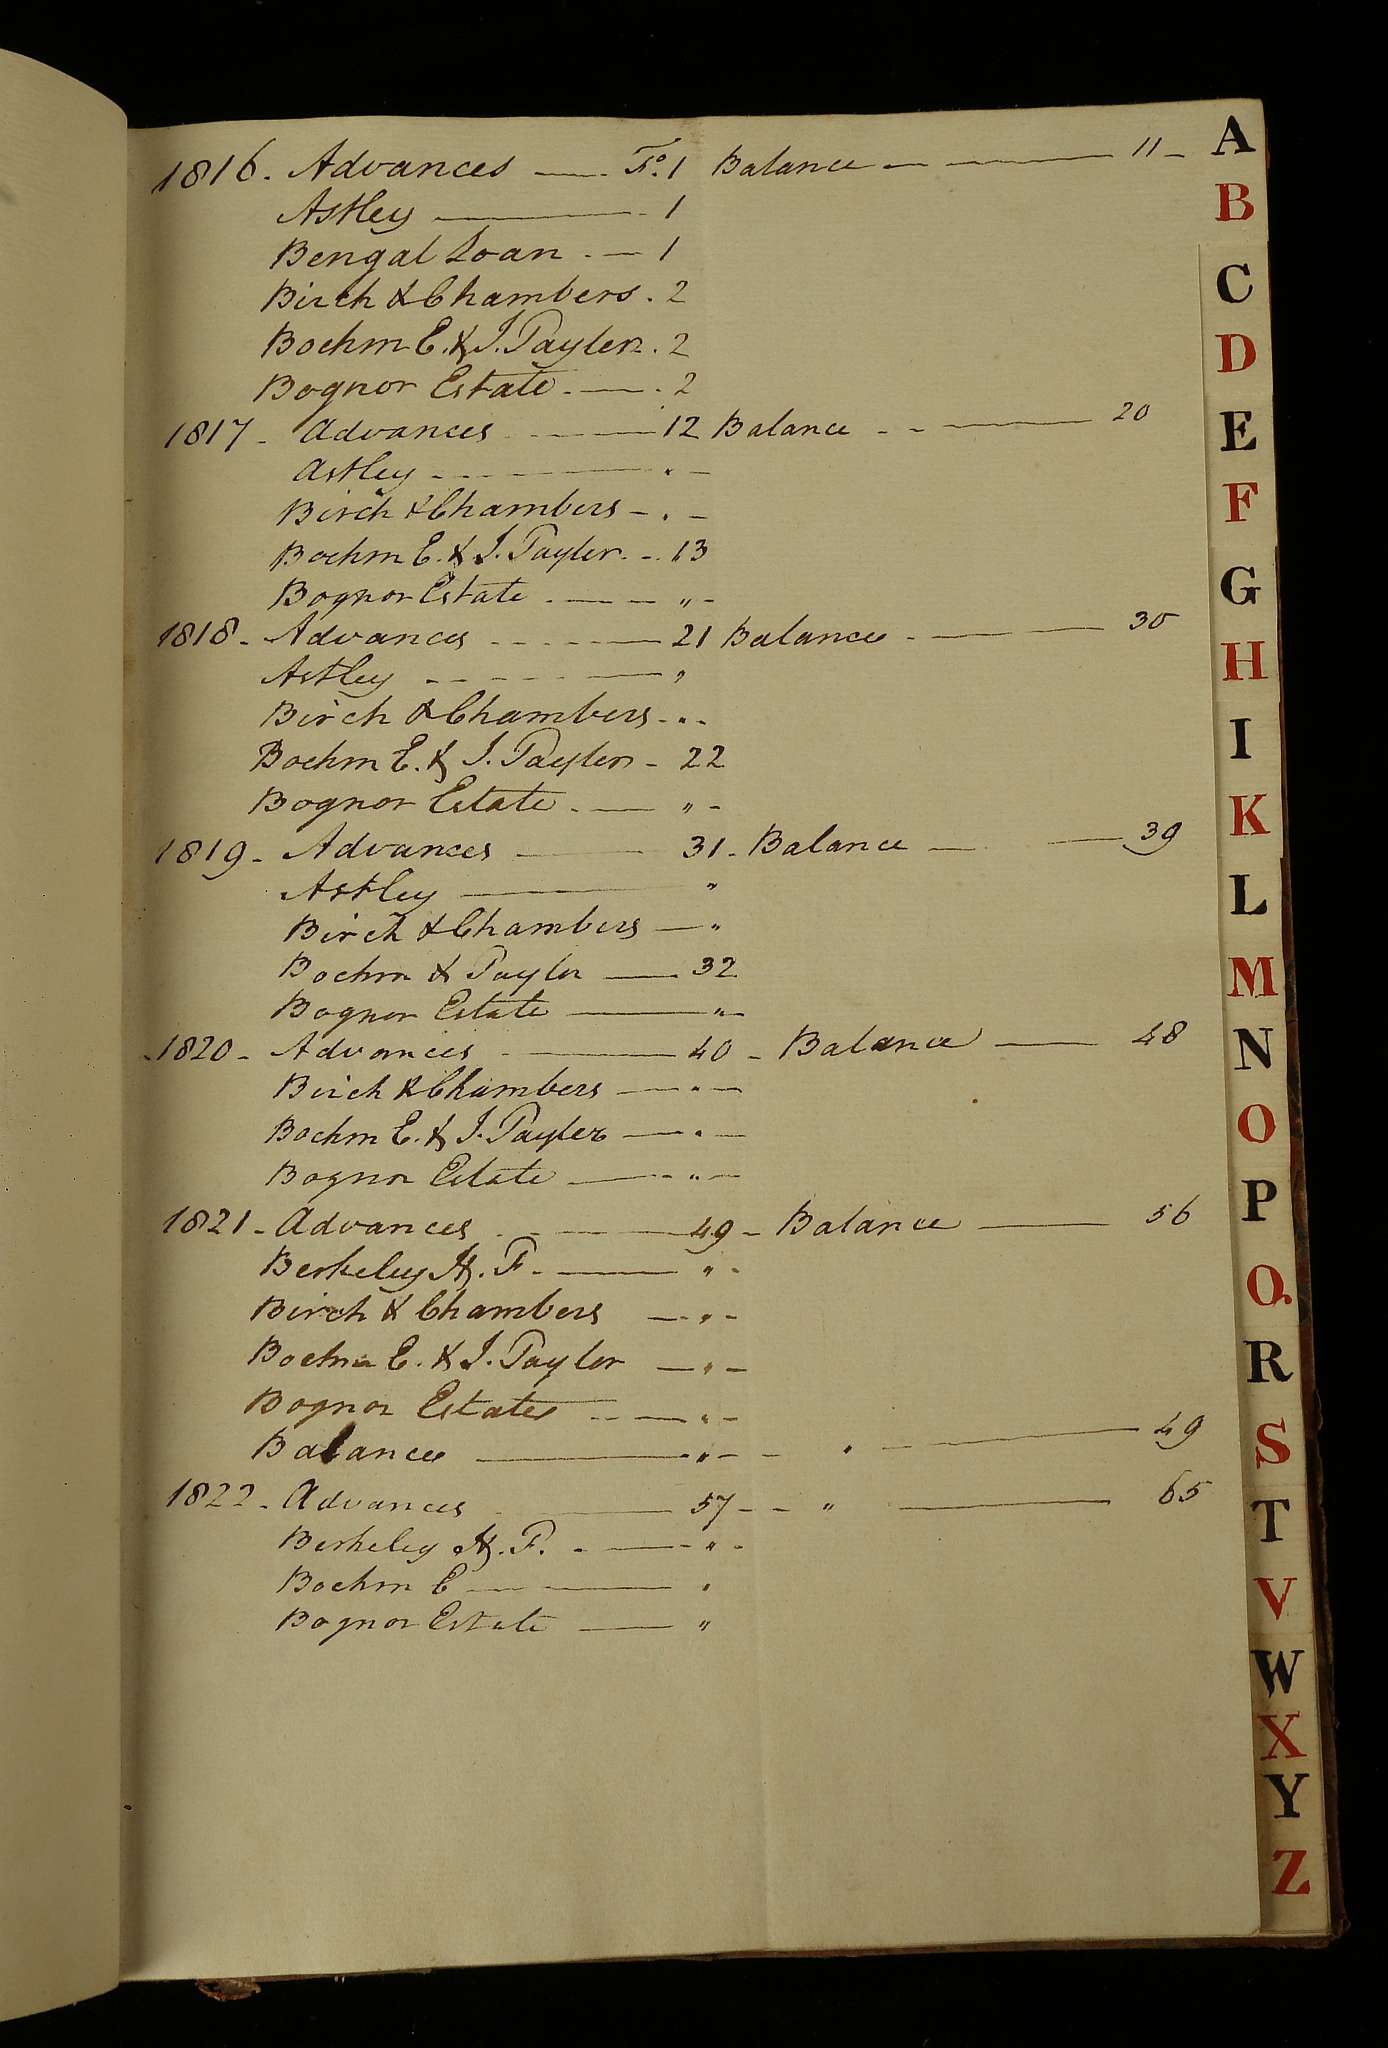 1816. Advances — Fo. 1 Balance — — 11 –
Astley — 1
Bengal Loan . — 1
Birch & Chambers . 2
Boehm E. & J. Tayler . 2
Bognor Estate . — . 2
1817 - Advances - — 12 Balance - - — 20
Astley - - - — " —
Birch & Chambers - " -
Boehm E. & J. Tayler - - 13
Bognor Estate . — - " -
1818 - Advances - - - — 21 Balance - — — 30
Astley - - - - — "
Birch & Chambers - " -
Boehm E. & J. Tayler - 22
Bognor Estate . — " -
1819 - Advances — 31 - Balance — — 39
Astley — "
Birch & Chambers — "
Boehm & Tayler — 32
Bognor Estate — " -
1820 - Advances - — 40 - Balance — 48
Birch & Chambers — " —
Boehm E. & J. Tayler — " —
Bognor Estate — - " —
1821 - Advances - - — 49 - Balance — 56
Berkeley H. F. - — " -
Birch & Chambers — " -
Boehm E. & J. Taylor — " —
Bognor Estates - - — " -
Balance — " - - " - — 49
1822 - Advances - — 57 - - " — 65
Berkeley H. F. - — " -
Boehm E — - — "
Bognor Estate — "
A
B
C
D
E
F
G
H
I
K
L
M
N
O
P
Q.
R
S
T
V
W
X
Y
Z